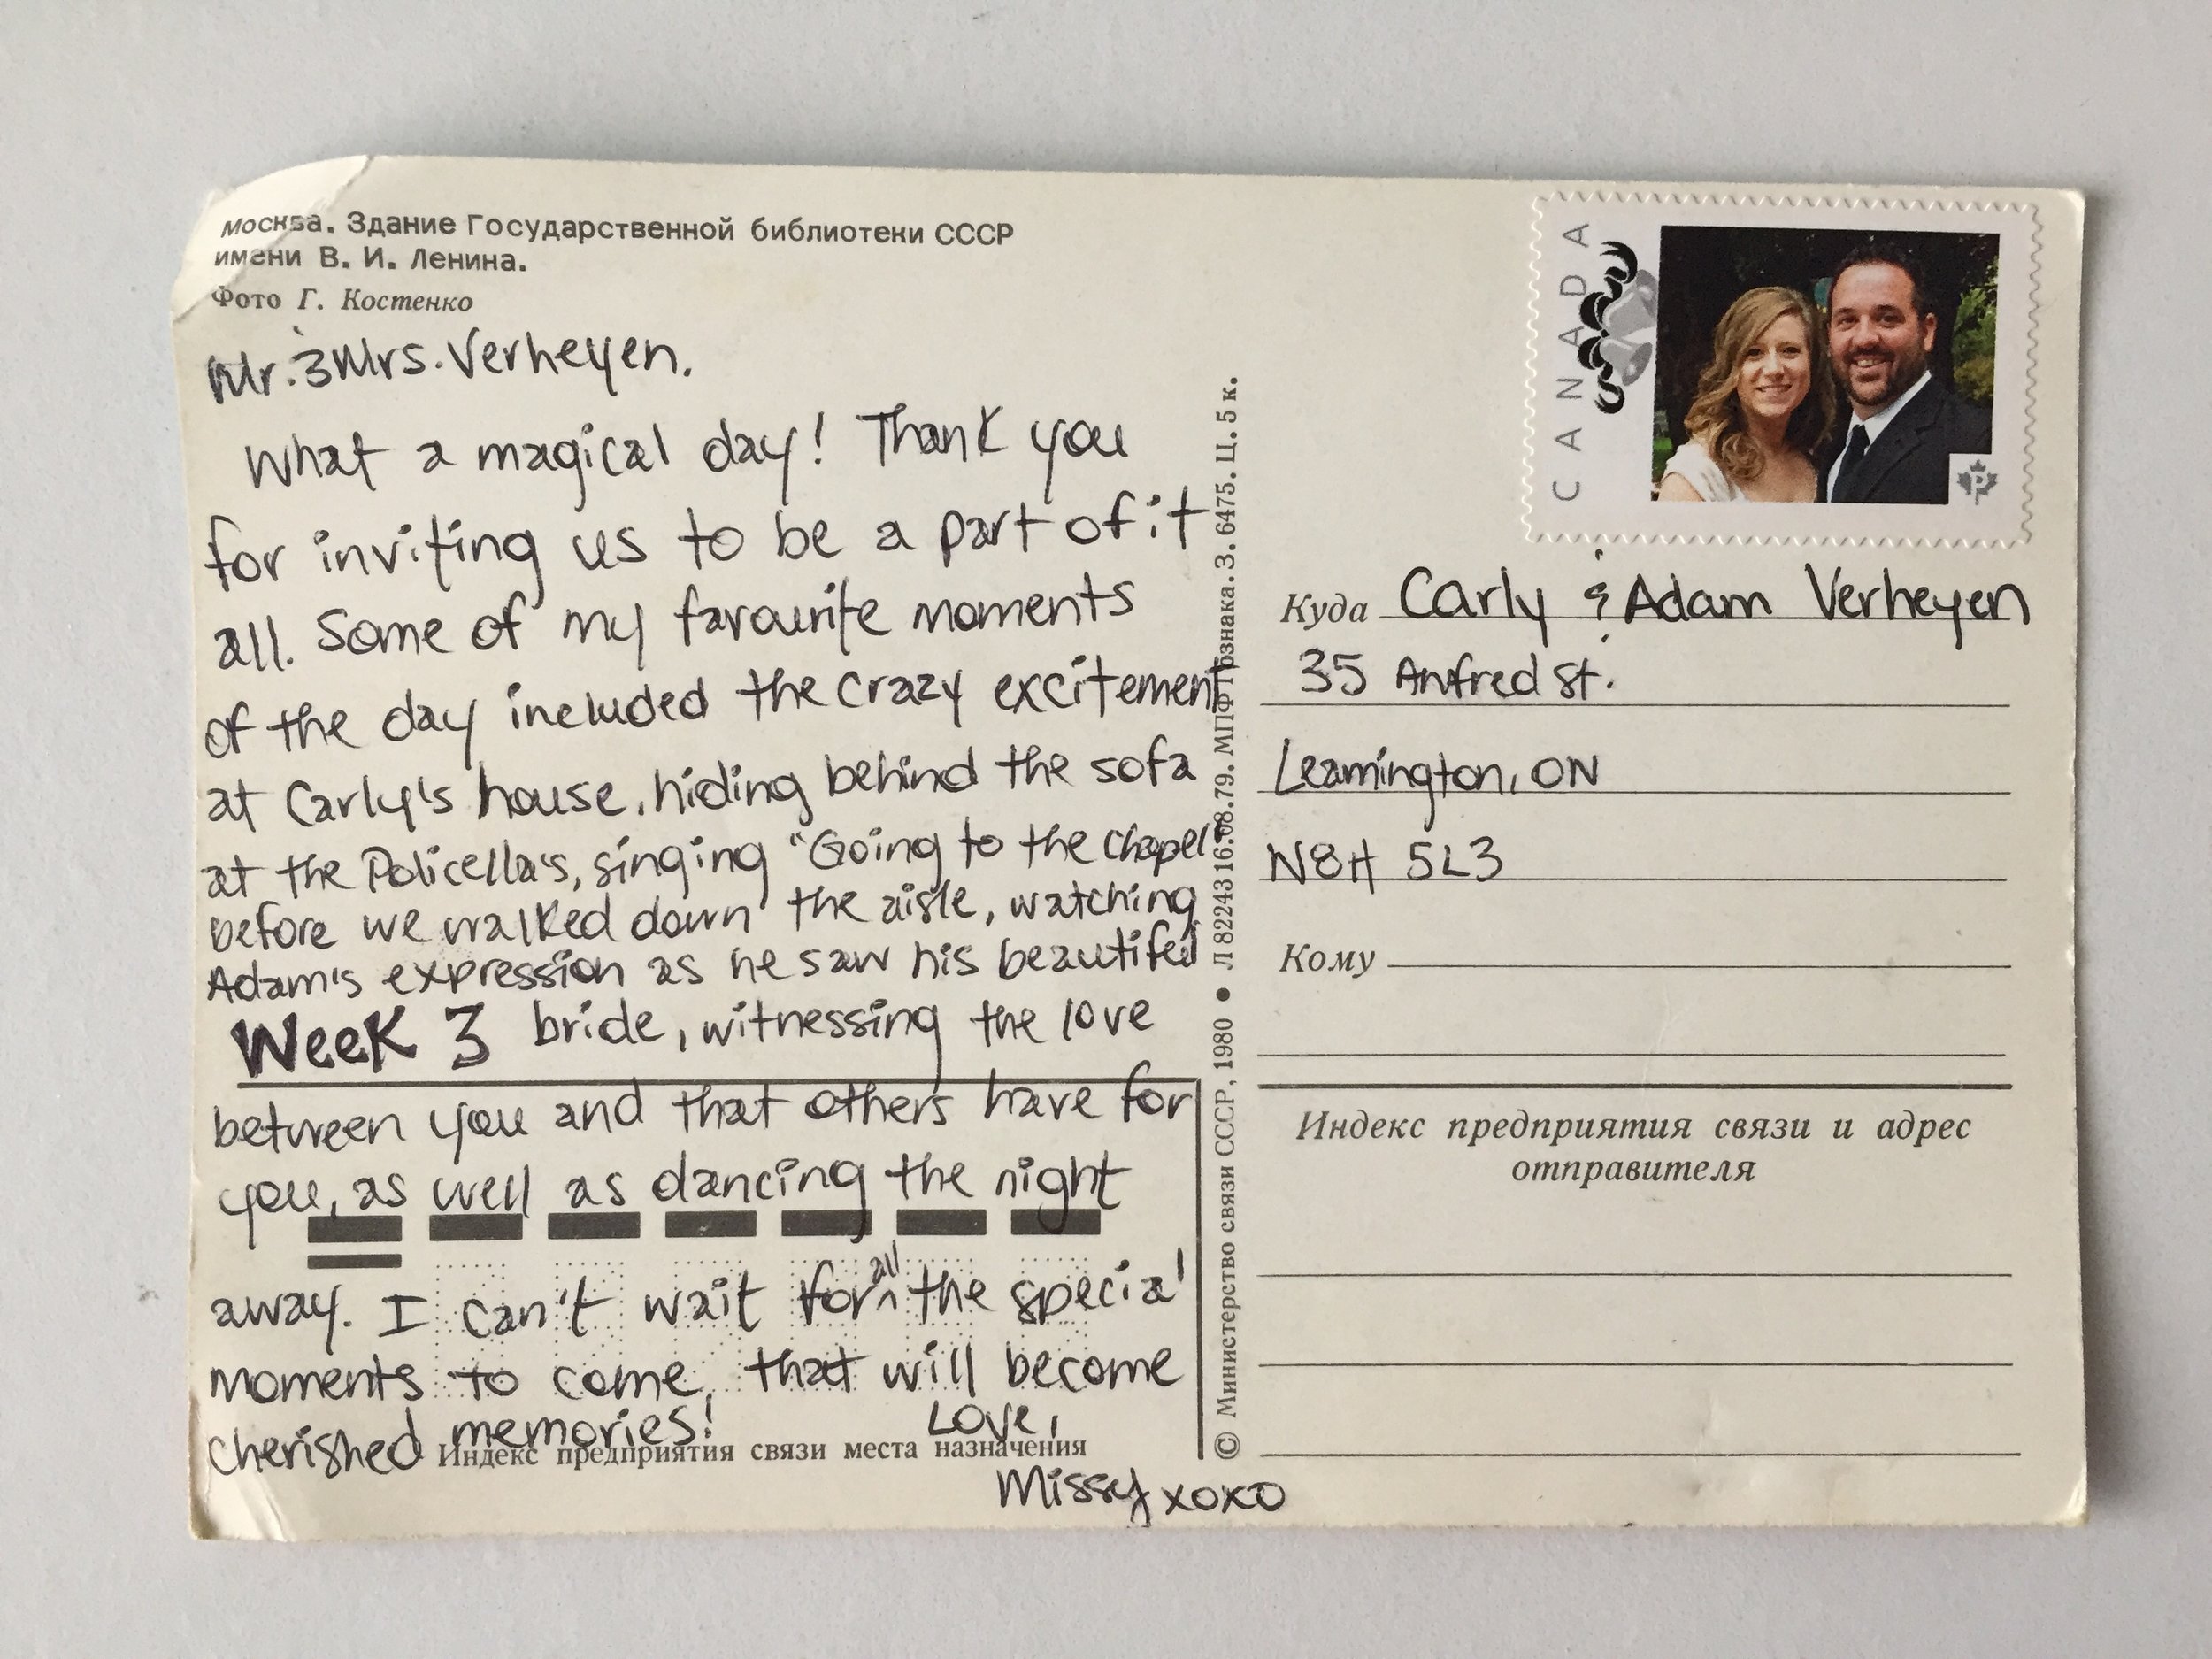 Москва. Здание Государственной библиотеки СССР
имени В. И. Ленина.
Фото Г. Костенко
Mr. & Mrs. Verheyen.
What a magical day! Thank you
for inviting us to be a part of it
all. Some of my favourite moments
of the day included the crazy excitement
at Carly's house, hiding behind the sofa
at the Policella's, singing "Going to the chapel"
before we walked down the aisle, watching
Adam's expression as he saw his beautiful
Week 3 bride, witnessing the love
between you and that others have for
you, as well as dancing the night
away. I can't wait for ^all the special
moments to come, that will become
cherished memories! Love,
Индекс предприятия связи места назначения
Missy xoxo
© Министерство связи СССР, 1980 • Л 82243 16.08.79. МПФ Гознака. З. 6475. Ц. 5 к.
CANADA
P
Куда Carly & Adam Verheyen
35 Anfred St.
Leamington, ON
N8H 5L3
Кому
Индекс предприятия связи и адрес
отправителя